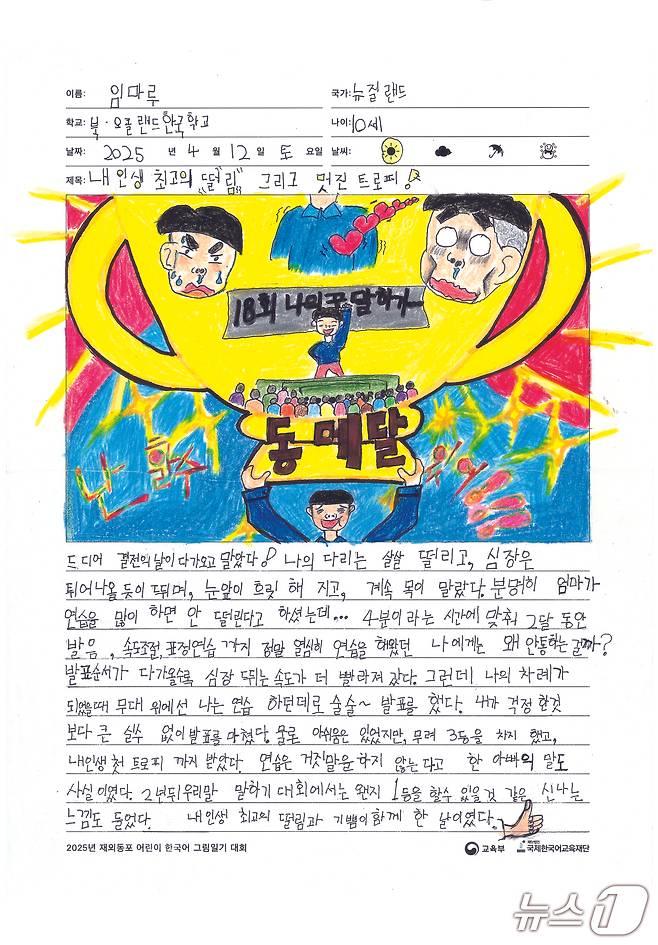 이름: 임마루
국가: 뉴질랜드
학교: 북·오클랜드한국학교
나이: 10세
날짜: 2025 년 4 월 12 일 토 요일
날씨:
제목: 내 인생 최고의 "떨림" 그리고 멋진 트로피!
18회 나의 꿈 말하기
동메달
난 할수
드디어 결전의 날이 다가오고 말았다! 나의 다리는 살살 떨리고, 심장은
튀어나올 듯이 뛰며, 눈앞이 흐릿 해 지고, 계속 목이 말랐다. 분명히 엄마가
연습을 많이 하면 안 떨린다고 하셨는데... 4분이라는 시간에 맞춰 2달 동안
발음, 속도조절, 표정연습 까지 정말 열심히 연습을 해왔던 나에게는 왜 안통하는 걸까?
발표순서가 다가올수록 심장 뛰는 속도가 더 빨라져 갔다. 그런데 나의 차례가
되었을때 무대 위에선 나는 연습 하던데로 술술~ 발표를 했다. 내가 걱정 한것
보다 큰 실수 없이 발표를 마쳤다. 물론 아쉬움은 있었지만, 무려 3등을 차지 했고,
내인생 첫 트로피 까지 받았다. 연습은 거짓말을 하지 않는 다고 한 아빠의 말도
사실 이였다. 2년뒤 우리말 말하기 대회에서는 왠지 1등을 할수 있을것 같은 신나는
느낌도 들었다. 내 인생 최고의 떨림과 기쁨이 함께 한 날이였다.
2025년 재외동포 어린이 한국어 그림일기 대회
교육부
재단법인 국제한국어교육재단
뉴스1